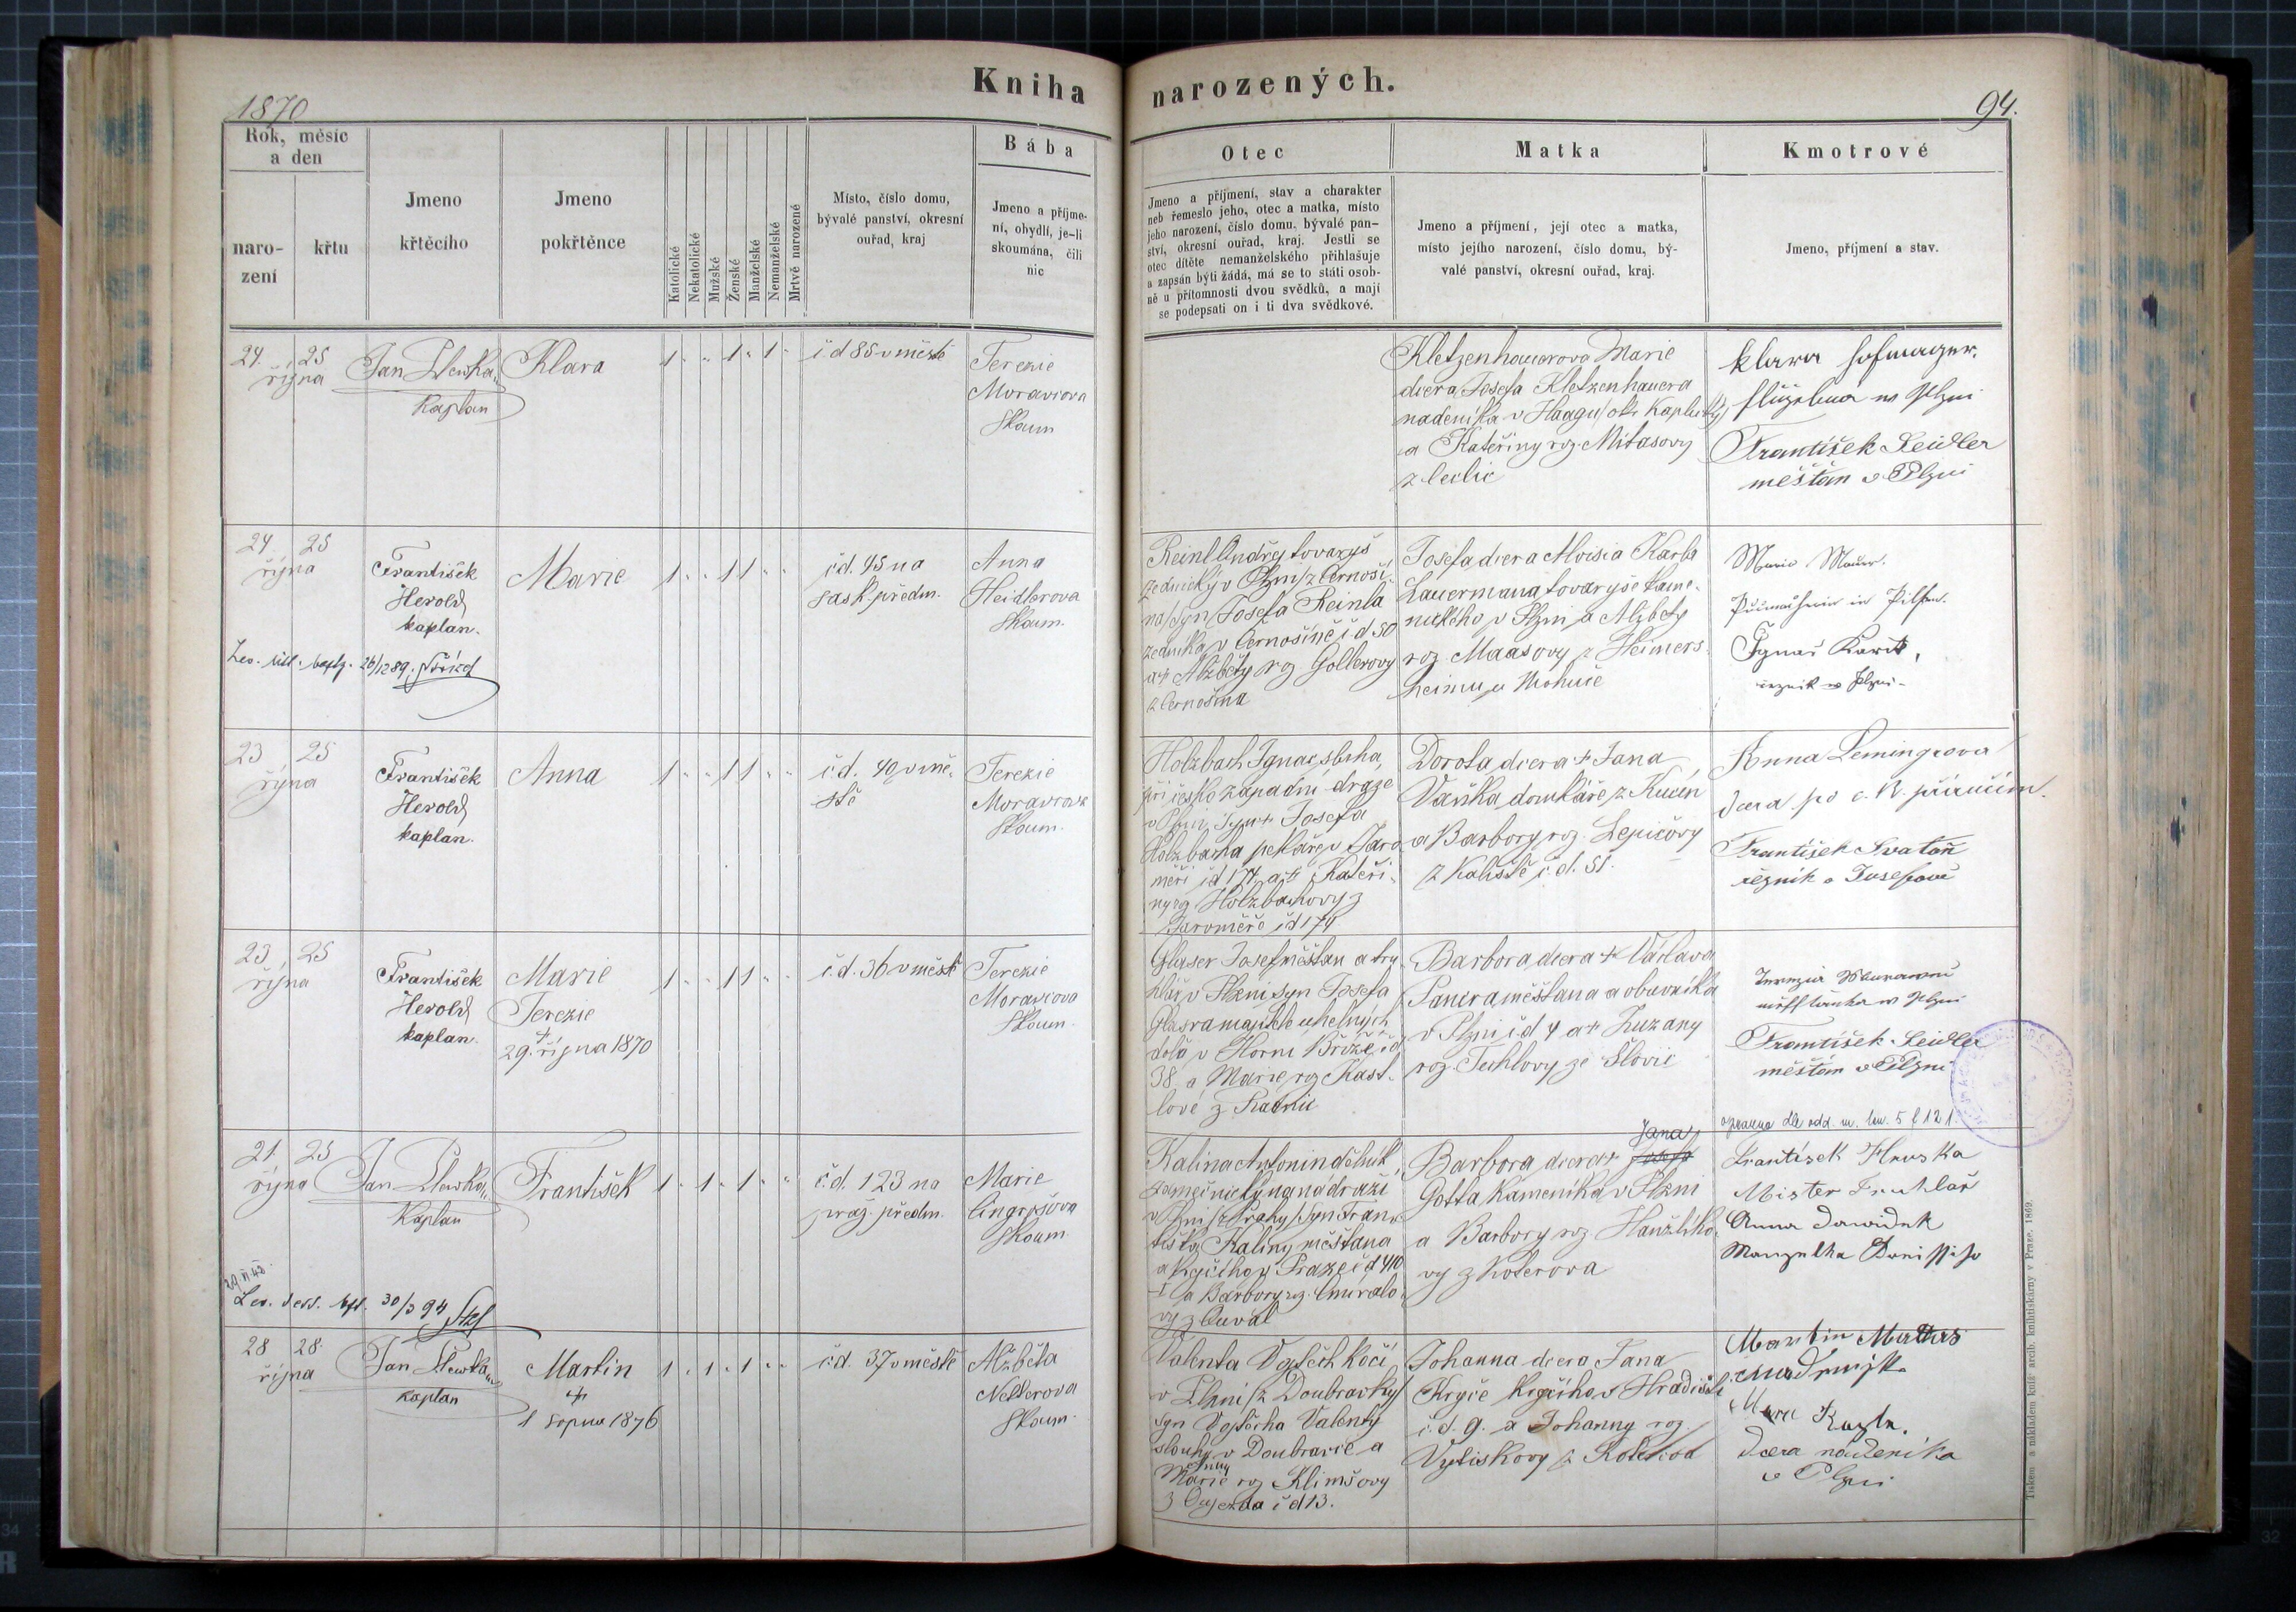 Kniha narozených.
1870
94.
Rok, měsíc
a den
naro-
zení
křtu
Jmeno
křtěcího
Jmeno
pokřtěnce
Katolické
Nekatolické
Mužské
Ženské
Manželské
Nemanželské
Mrtvě narozené
Místo, číslo domu,
bývalé panství, okresní
ouřad, kraj
Bába
Jmeno a příjme-
ní, obydlí, je-li
skoumána, čili
nic
Otec
Jmeno a příjmení, stav a charakter
neb řemeslo jeho, otec a matka, místo
jeho narození, číslo domu, bývalé pan-
ství, okresní ouřad, kraj. Jestli se
otec dítěte nemanželského přihlašuje
a zapsán býti žádá, má se to státi osob-
ně u přítomnosti dvou svědků, a mají
se podepsati on i ti dva svědkové.
Matka
Jmeno a příjmení, její otec a matka,
místo jejího narození, číslo domu, bý-
valé panství, okresní ouřad, kraj.
Kmotrové
Jmeno, příjmení a stav.
24. 25
října
Jan
Kaplan
Klara
1 1 1
čd 85 v městě
Terezie
Moravcova
Skoum
Kletzenhauerova Marie
dcera Josefa Kletzenhauera
nadeníka v Haagu
a Kateřiny roz. Mitasovy
František Seidler
měšťan v Plzni
24 25
října
František
Herold
kaplan.
Marie
1 1 1
čd. 45 na
sask. předm.
Anna
Heidlerova
Skoum.
26/12 89.
Reinl Ondřej tovaryš
zednický v Plzni z Černoší-
na syn Josefa Reinla
zedníka v Černošíně čd 50
a + Alžběty roz Gollerovy
z Černošína
Josefa dcera Aloisia Karla
Lauermana tovaryše kame-
nického v Plzni a Alžbety
roz Maasovy z Heimers-
heimu u Mohuče
in Pilsen.
řezník v Plzni
23 25
října
František
Herold
kaplan.
Anna
1 1 1
čd. 40 v mě-
stě
Terezie
Moravcova
Skoum.
Holzbach Ignac sluha
při česko západní draze
v Plzni, Syn + Josefa
Holzbacha pekaře v Jaro-
měři čd 174 a + Kateři-
ny roz Holzbachovy z
Jaroměře čd 174
Dorota dcera + Jana
Vaňka domkáře z
a Barbory roz. Lepičovy
z Kaliště č.d. 51.
Anna
dcera po c. k.
František Svatoň
řezník v Josefově
23 25
října
František
Herold
kaplan.
Marie
Terezie
+
29. října 1870
1 1 1
č.d. 36 v městě
Terezie
Moravcova
Skoum.
Glaser Josef měšťan a tru-
hlář v Plzni syn Josefa
Glasra majitele uhelných
dolů v Horní Bříze čd
38 a Marie roz Kast-
lové z Radnic
Barbora dcera + Václava
Pancra měšťana a obuvníka
v Plzni čd 4 a + Zuzany
roz. Tuchlovy ze Šlovic
František Seidler
měšťan v Plzni
21. 25
října
Jan
Kaplan
František
1 1 1
č.d. 123 na
praž. předm.
Marie
Skoum.
30/3 94
Kalina Antonin dělník
zamečnický na nádraží
v Plzni z Prahy Syn Fran-
tiška Kaliny měšťana
a krejčího v Praze čd 410
Jana
Josefa
Barbora dcera +
Gotta kameníka v Plzni
a Barbory roz Hanžlíko-
vy z Koterova
František Hruska
Mister Truhlař
Anna
Manzelka
28 28.
října
Jan
kaplan
Martin
+
1 srpna 1876
1 1 1
čd. 37 v městě
Alžběta
Skoum.
Valenta Vojtěch kočí
v Plzni z Doubravky
syn Vojtěcha Valenty
slouhy v Doubravce a
Anny
Marie roz Klimšovy
z Oujezda čd 13.
Johanna dcera Jana
Krejče krejčího v Hradišti
č.d. 9. a Johanny roz
Martin
dcera nádeníka
v Plzni
Tiskem a nákladem kníž. arcib. knihtiskárny v Praze. 1869.